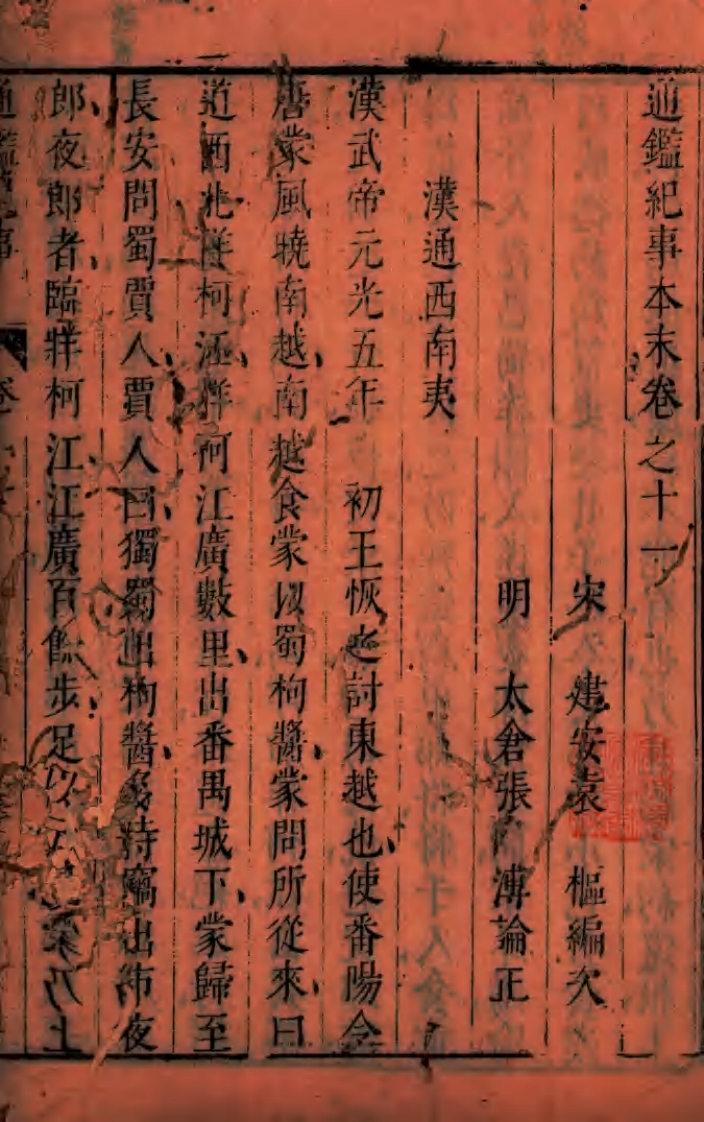 通鑑紀事本末卷之十一
宋 建安袁 樞編次
明 太倉張 溥論正
漢通西南夷
漢武帝元光五年 初王恢之討東越也使番陽令
唐蒙風曉南越南越食蒙以蜀枸醬蒙問所從來曰
道西北牂柯江牂柯江廣數里出番禺城下蒙歸至
長安問蜀賈人賈人曰獨蜀出枸醬多持竊出市夜
郎夜郎者臨牂柯江江廣百餘步足以 蒙乃上